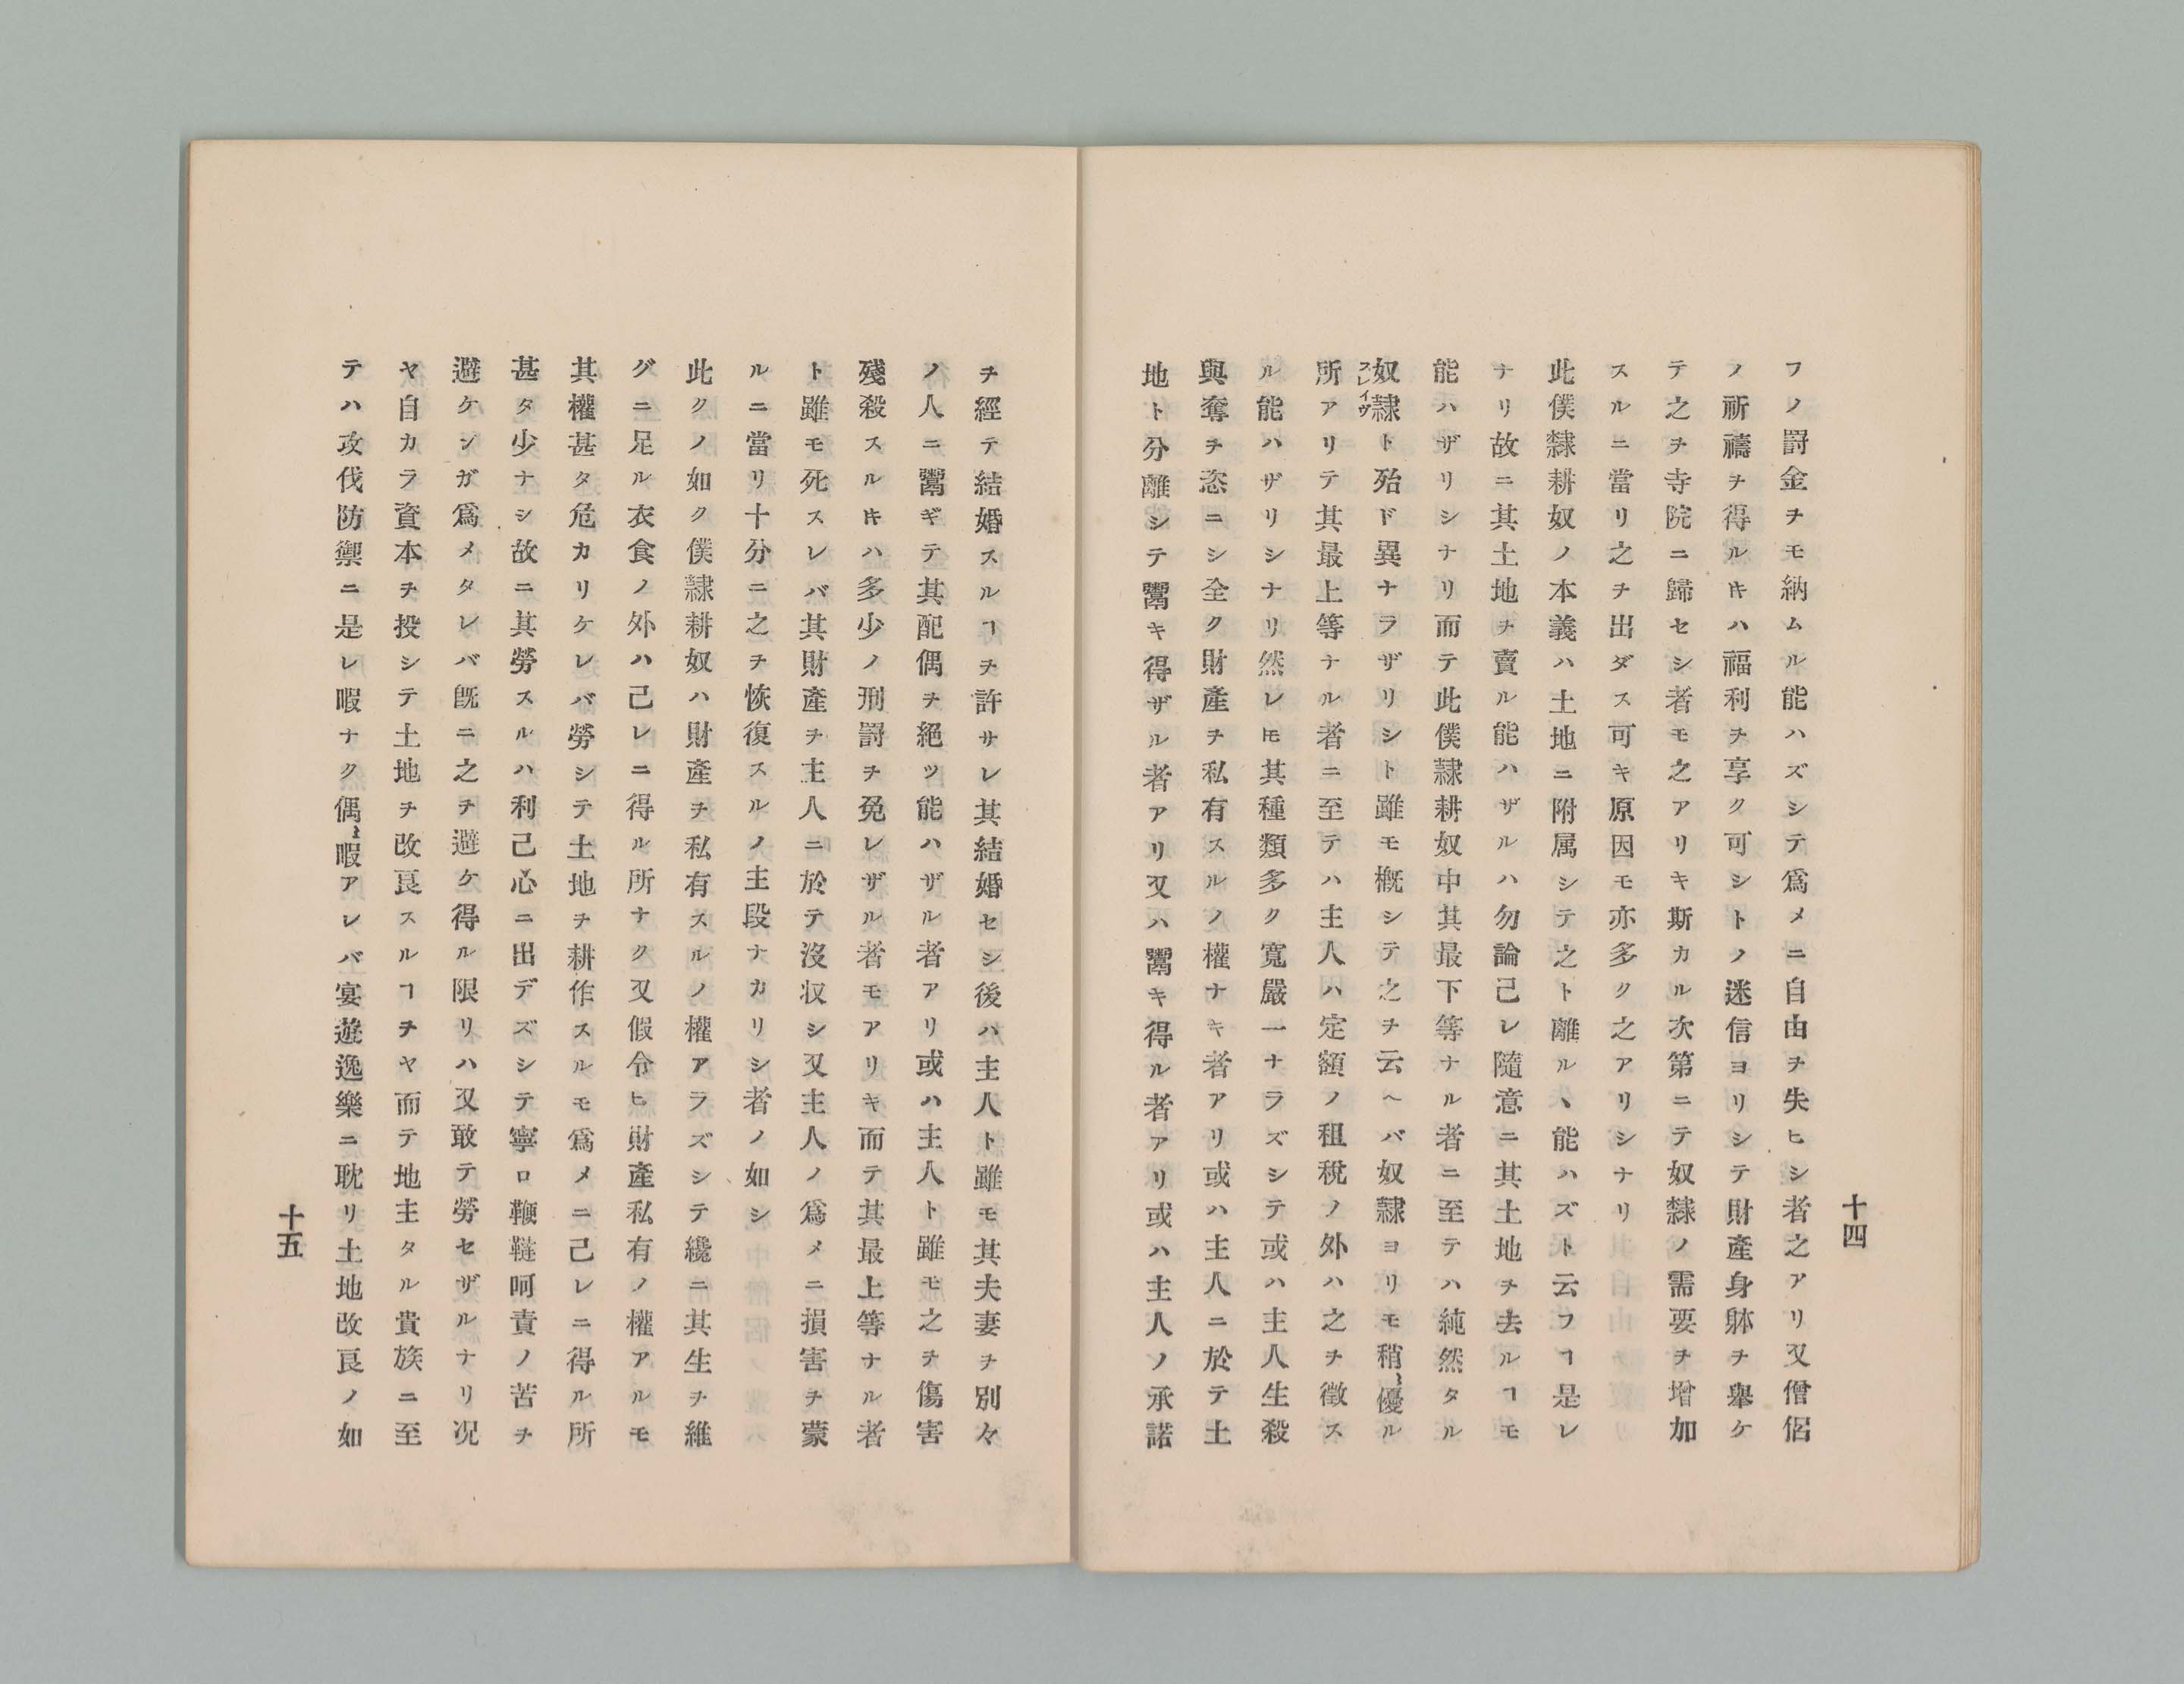 十四
フノ罸金ヲモ納ムル能ハズシテ爲メニ自由ヲ失ヒシ者之アリ又僧侶
ノ祈禱ヲ得ルヰハ福利ヲ享ク可シトノ迷信ヨリシテ財產身躰ヲ舉ケ
テ之ヲ寺院ニ歸セシ者モ之アリキ斯カル次第ニテ奴隸ノ需要ヲ增加
スルニ當リ之ヲ出ダス可キ原因モ亦多ク之アリシナリ
此僕隸耕奴ノ本義ハ土地ニ附属シテ之ト離ルヽ能ハズト云フヿ是レ
ナリ故ニ其土地ヲ賣ル能ハザルハ勿論己レ隨意ニ其土地ヲ去ルヿモ
能ハザリシナリ而テ此僕隷耕奴中其最下等ナル者ニ至テハ純然タル
奴隷ト殆ド異ナラザリシト雖モ槪シテ之ヲ云ヘバ奴隷ヨリモ稍〻優ル
スレイヴ
所アリテ其最上等ナル者ニ至テハ主人ハ定額ノ租稅ノ外ハ之ヲ徵ス
ル能ハザリシナリ然レ𪜈其種類多ク寬嚴一ナラズシテ或ハ主人生殺
與奪ヲ恣ニシ全ク財產ヲ私有スルノ權ナキ者アリ或ハ主人ニ於テ土
地ト分離シテ鬻キ得ザル者アリ又ハ鬻キ得ル者アリ或ハ主人ノ承諾
ヲ經テ結婚スルヿヲ許サレ其結婚セシ後ハ主人ト雖モ其夫妻ヲ別々
ノ人ニ鬻ギテ其配偶ヲ絕ツ能ハザル者アリ或ハ主人ト雖モ之ヲ傷害
殘殺スルヰハ多少ノ刑罸ヲ免レザル者モアリキ而テ其最上等ナル者
ト雖モ死スレバ其財產ヲ主人ニ於テ沒収シ又主人ノ爲メニ損害ヲ蒙
ルニ當リ十分ニ之ヲ恢復スルノ主段ナカリシ者ノ如シ
此クノ如ク僕隷耕奴ハ財產ヲ私有スルノ權アラズシテ纔ニ其生ヲ維
グニ足ル衣食ノ外ハ己レニ得ル所ナク又假令ヒ財產私有ノ權アルモ
其權甚タ危カリケレバ勞シテ土地ヲ耕作スルモ爲メニ己レニ得ル所
甚タ少ナシ故ニ其勞スルハ利己心ニ出デズシテ寧ロ鞭韃呵責ノ苦ヲ
避ケンガ爲メタレバ旣ニ之ヲ避ケ得ル限リハ又敢テ勞セザルナリ况
ヤ自カラ資本ヲ投シテ土地ヲ改良スルヿヲヤ而テ地主タル貴族ニ至
テハ攻伐防禦ニ是レ暇ナク偶〻暇アレバ宴遊逸樂ニ耽リ土地改良ノ如
十五